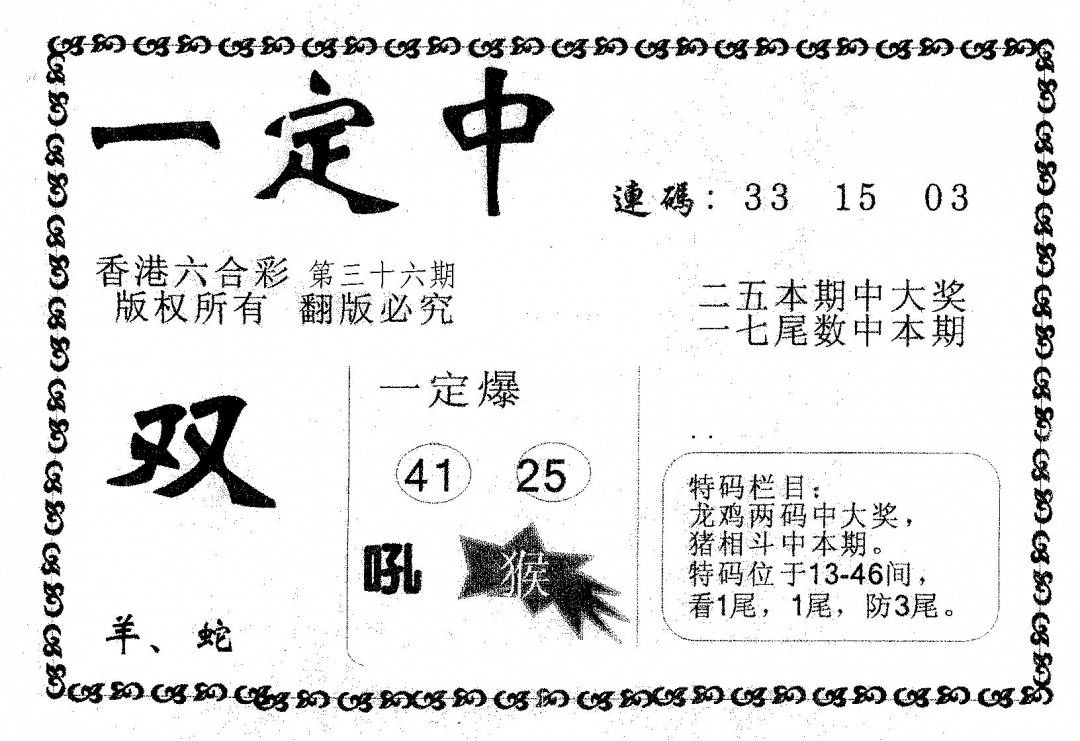 一定中
連碼：33 15 03
香港六合彩 第三十六期
版权所有 翻版必究
二五本期中大奖
一七尾数中本期
双
羊、蛇
一定爆
41 25
吼 猴
特码栏目：
龙鸡两码中大奖，
猪相斗中本期。
特码位于13-46间，
看1尾，1尾，防3尾。